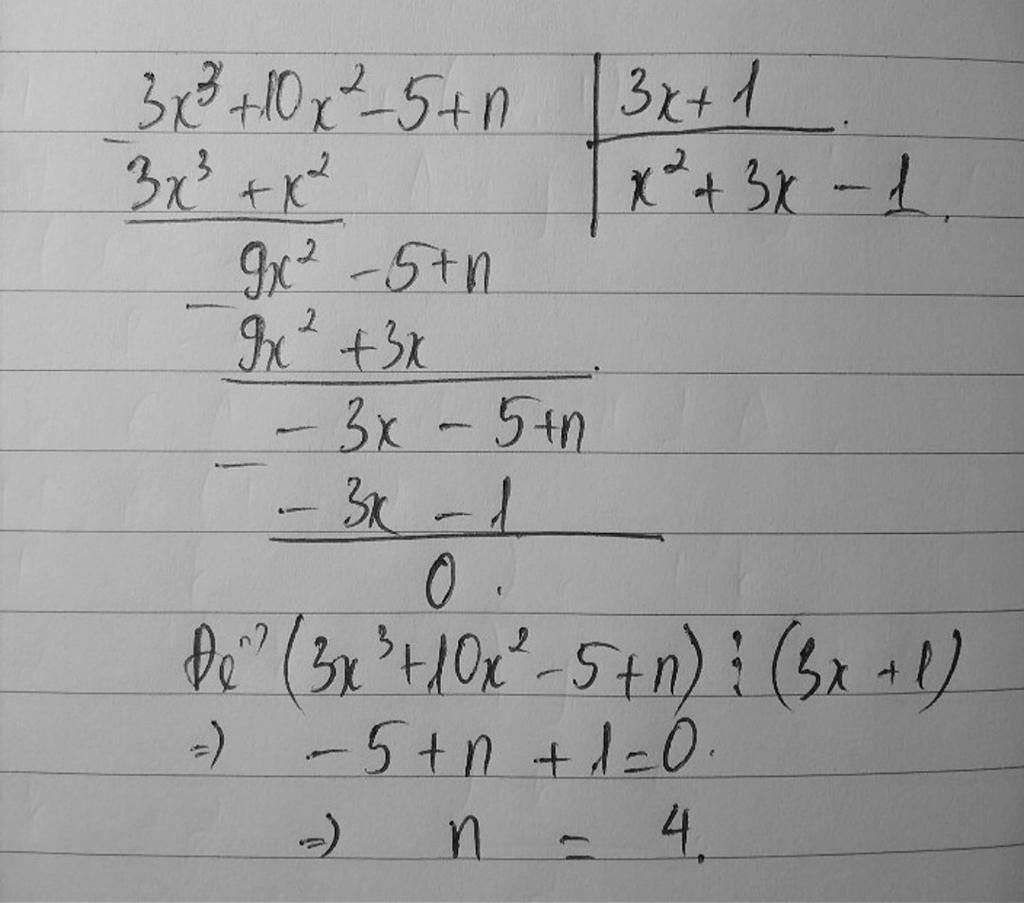 3x³ + 10x² - 5 + n | 3x + 1
- 3x³ + x² | x² + 3x - 1
9x² - 5 + n
- 9x² + 3x
- 3x - 5 + n
- - 3x - 1
0
Để (3x³ + 10x² - 5 + n) ⋮ (3x + 1)
=> - 5 + n + 1 = 0.
=> n = 4.